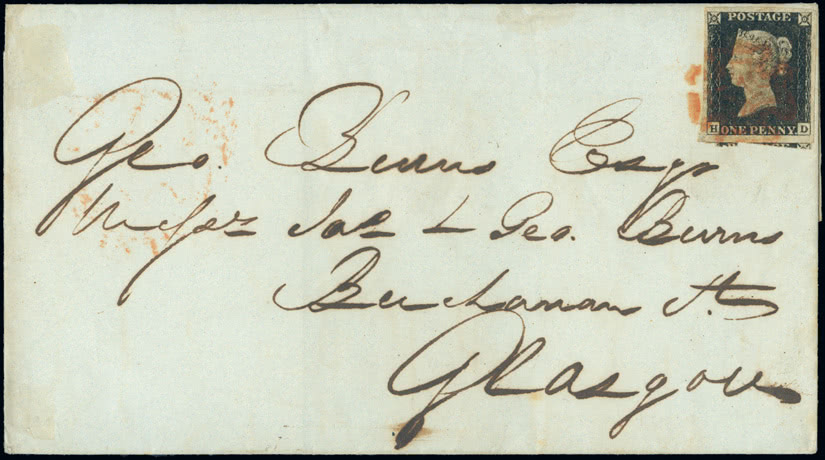 POSTAGE
H ONE PENNY D
Geo. Burns Esqr
Messrs Jas & Geo. Burns
Buchanan St.
Glasgow